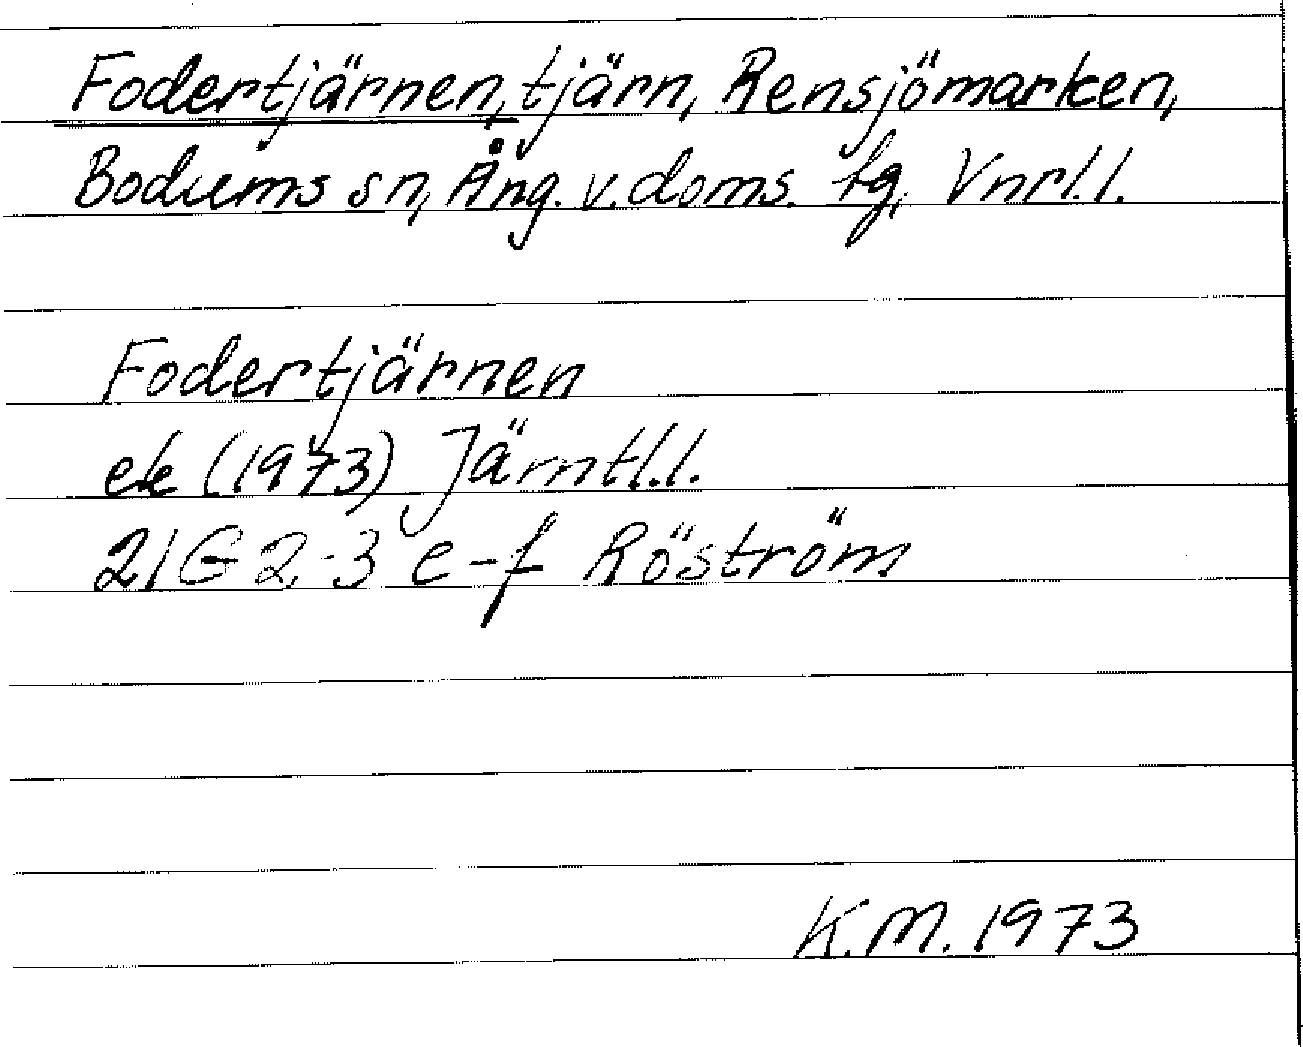 Fodertjärnen, tjärn, Rensjömarken,
Bodums sn, Ång. v. doms. tg, Vnrl.l.
Fodertjärnen
ek (1973) Jämtl.l.
21G 2-3 e-f Röström
K.M. 1973